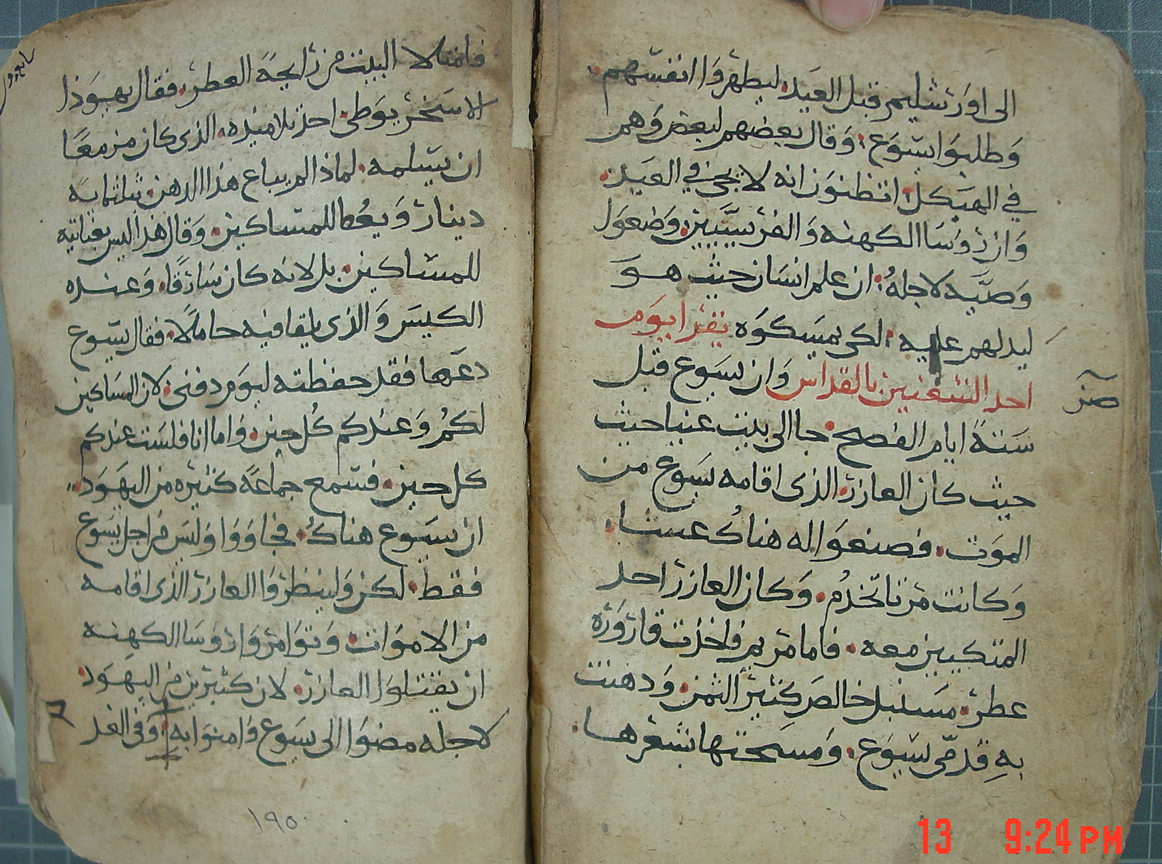 الى اورشليم قبل العيد. ليطهروا انفسهم.
وطلبوا يسوع: وقال بعضهم لبعض وهم
في الهيكل. اتظنون انه لا يجي في العيد.
وان روسا الكهنه والفريسيين وضعوا
وصيه لاجله: ان علم انسان حيث هو
ليدلهم عليه: لكي يمسكوه يقرا يوم
احد الشعنين بالقداس وان يسوع قبل
ستة ايام الفصح. جا الى بيت عنيا حيث
حيث كان العازر. الذى اقامه يسوع من
الموت. فصنعوا له هناك عسا.
وكانت مرتا تخدم. وكان العازر احد
المتكيين معه. فاما مريم فاخذت قارورة
عطر. سنبل خالص كثير الثمن. ودهنت
به قدمي يسوع. ومسحتها بشعرها.
فامتلا البيت من رايحة العطر. فقال يهوذا
الاسخريوطي. احد تلاميذه. الذى كان مزمعا
ان يسلمه. لماذا لم يباع هذا الدهن بثلثمايه
دينار ويعطا للمساكين. وقال هذا ليس بعنايته
للمساكين. بل لانه كان سارقا. وعنده
الكيس والذى يلقا فيه حاملا. فقال يسوع
دعها فقد حفظته ليوم دفني. لان المساكين
لكم وعندكم كل حين. واما انا فلست عندكم
كل حين. فسمع جماعة كثيره من اليهود.
ان يسوع هناك. فجاووا وليس من اجل يسوع
فقط. لكن ولينظروا العازر الذى اقامه
من الاموات. وتوامروا روسا الكهنه
ان يقتلوا العازر. لان كثيرين من اليهود.
لاجله مضوا الى يسوع وامنوا به. وفي الغد
١٩٥
13 9:24 PM